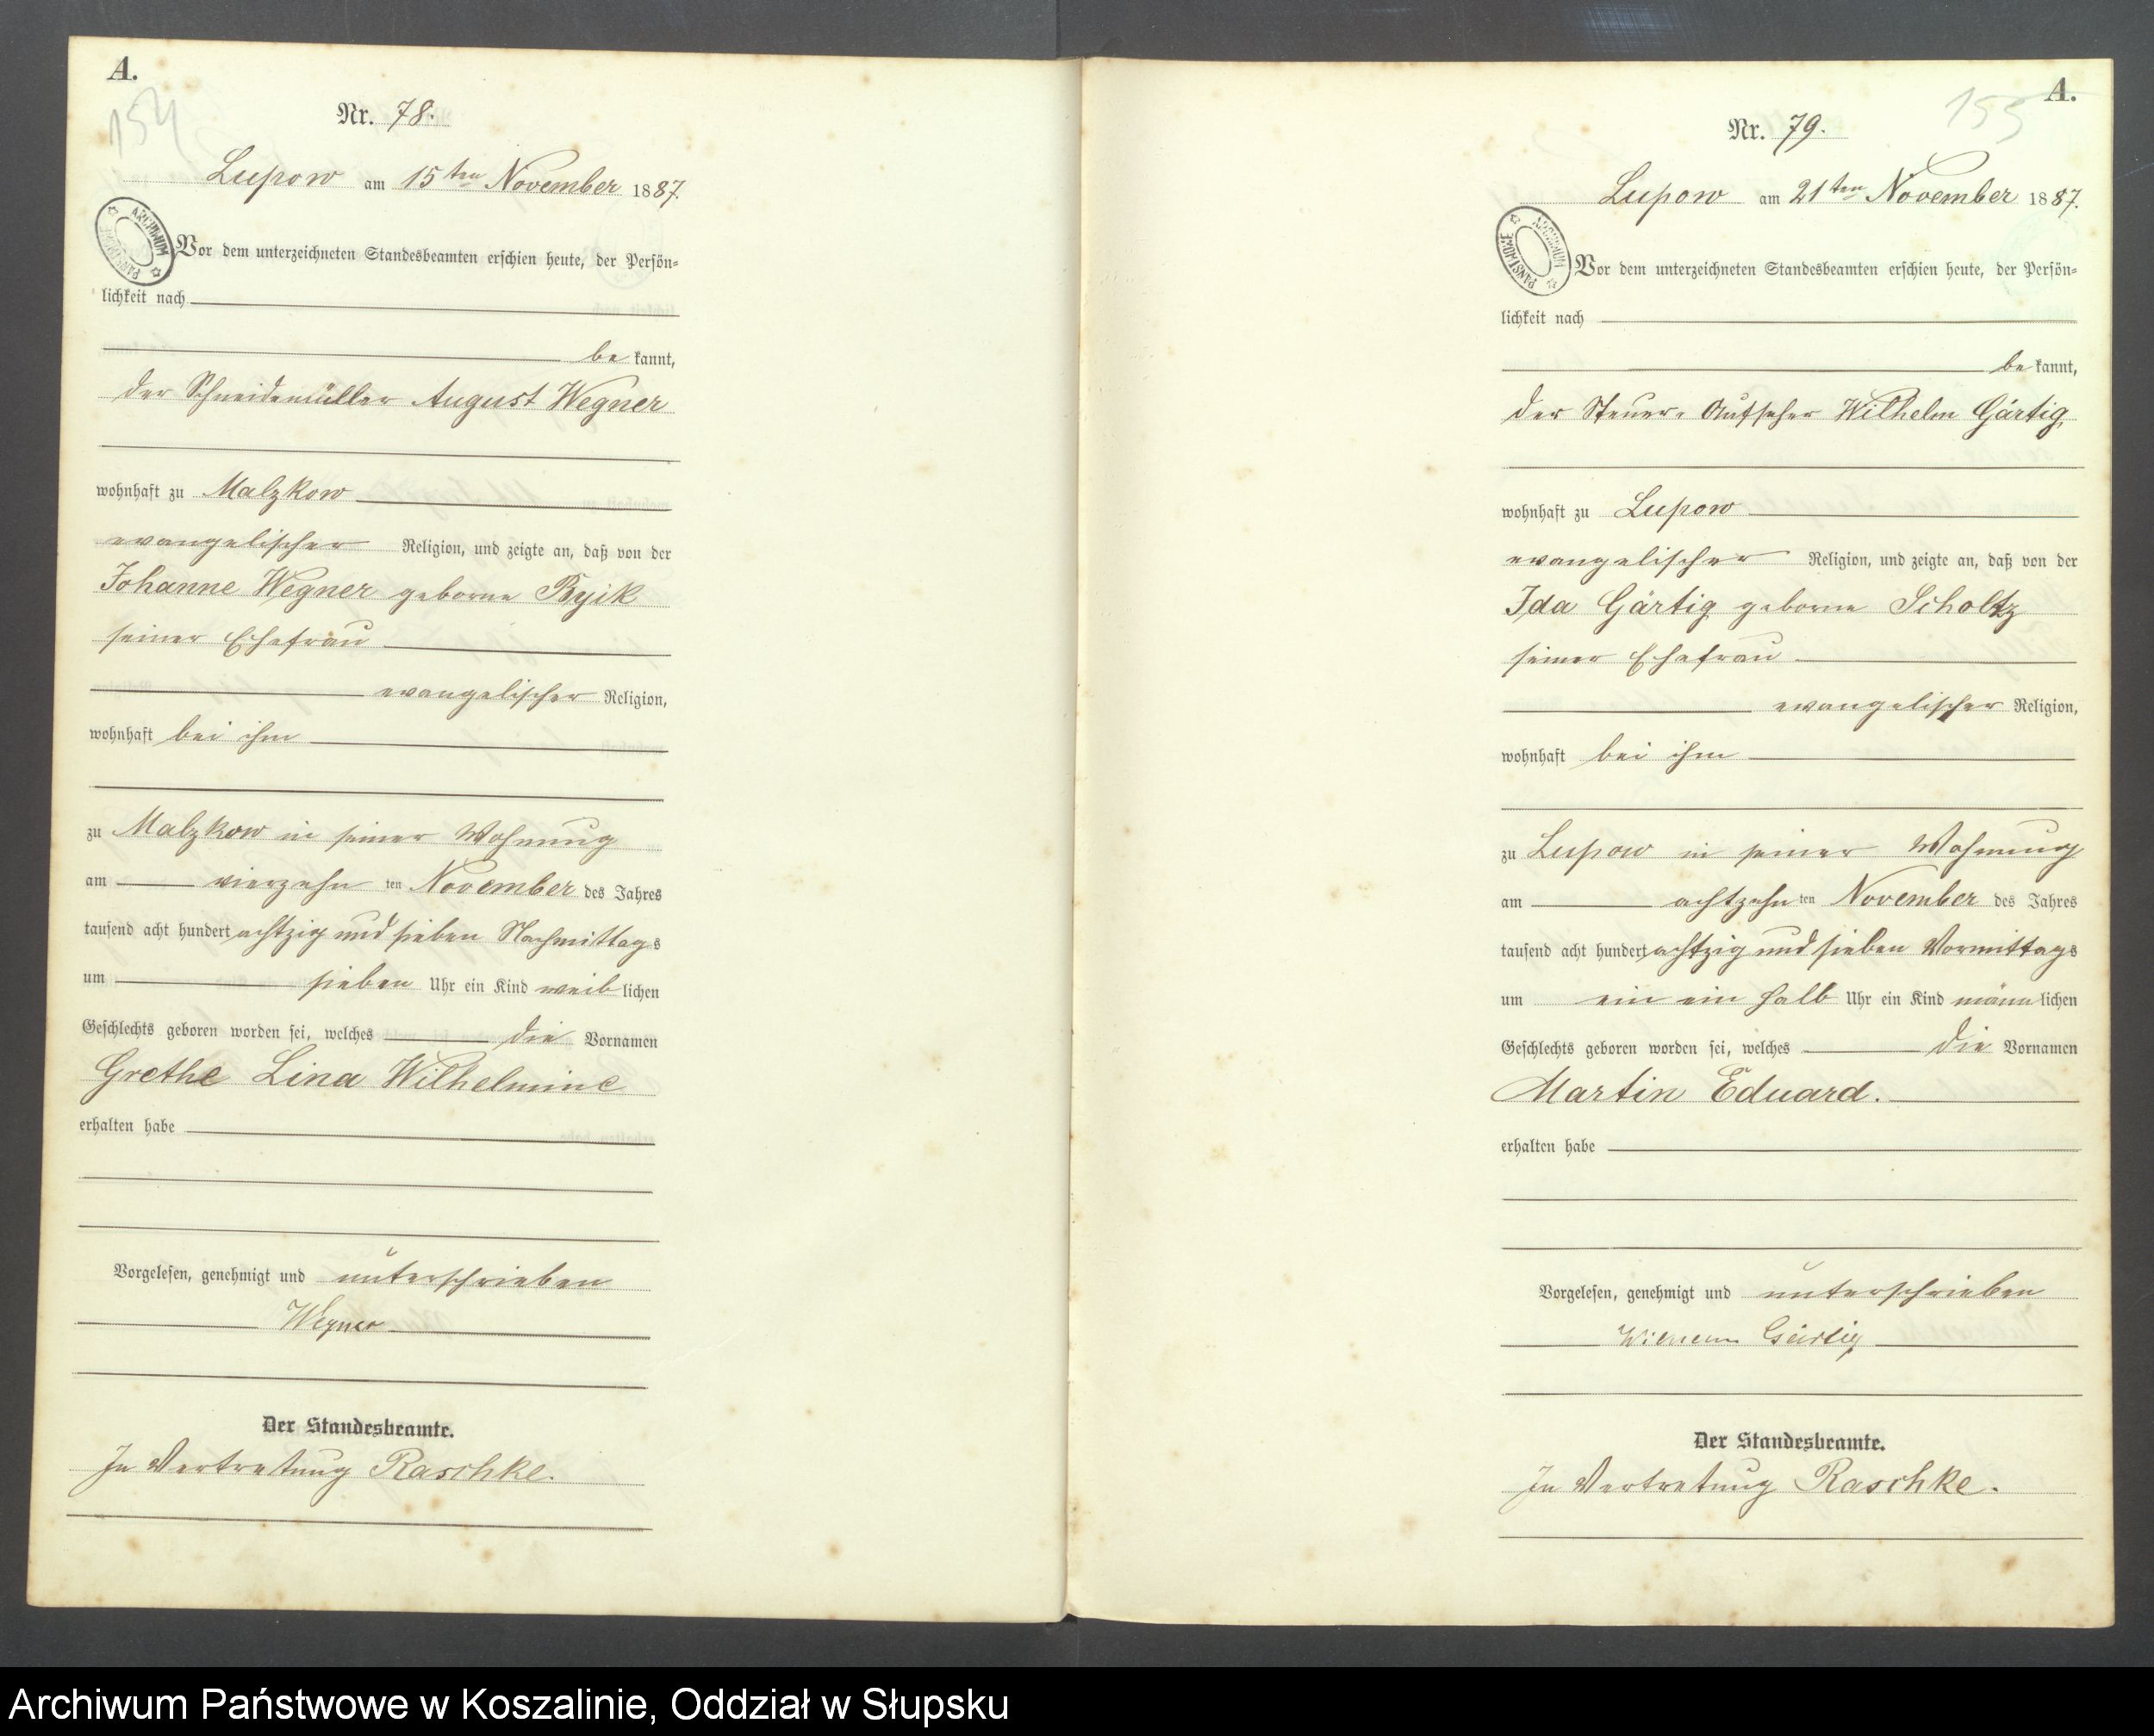 A.
154
Nr. 78.
Lupow am 15ten November 1887.
ARCHIWUM PAŃSTWOWE
Vor dem unterzeichneten Standesbeamten erschien heute, der Persön-
lichkeit nach
be kannt,
der Schneidemüller August Wegner
wohnhaft zu Malzkow
evangelischer Religion, und zeigte an, daß von der
Johanne Wegner geborne
seiner Ehefrau
evangelischer Religion,
wohnhaft bei ihm
zu Malzkow in seiner Wohnung
am vierzehn ten November des Jahres
tausend acht hundert achtzig und sieben Nachmittags
um sieben Uhr ein Kind weib lichen
Geschlechts geboren worden sei, welches die Vornamen
Grethe Lina Wilhelmine
erhalten habe
Vorgelesen, genehmigt und unterschrieben
Wegner
Der Standesbeamte.
In Vertretung Raschke.
A.
155
Nr. 79.
Lupow am 21ten November 1887.
ARCHIWUM PAŃSTWOWE
Vor dem unterzeichneten Standesbeamten erschien heute, der Persön-
lichkeit nach
be kannt,
der Steuer-Aufseher Wilhelm Gärtig,
wohnhaft zu Lupow
evangelischer Religion, und zeigte an, daß von der
Ida Gärtig geborne Scholtz
seiner Ehefrau
evangelischer Religion,
wohnhaft bei ihm
zu Lupow in seiner Wohnung
am achtzehn ten November des Jahres
tausend acht hundert achtzig und sieben Vormittags
um ein ein halb Uhr ein Kind männ lichen
Geschlechts geboren worden sei, welches die Vornamen
Martin Eduard.
erhalten habe
Vorgelesen, genehmigt und unterschrieben
Wilhelm Gärtig
Der Standesbeamte.
In Vertretung Raschke.
Archiwum Państwowe w Koszalinie, Oddział w Słupsku